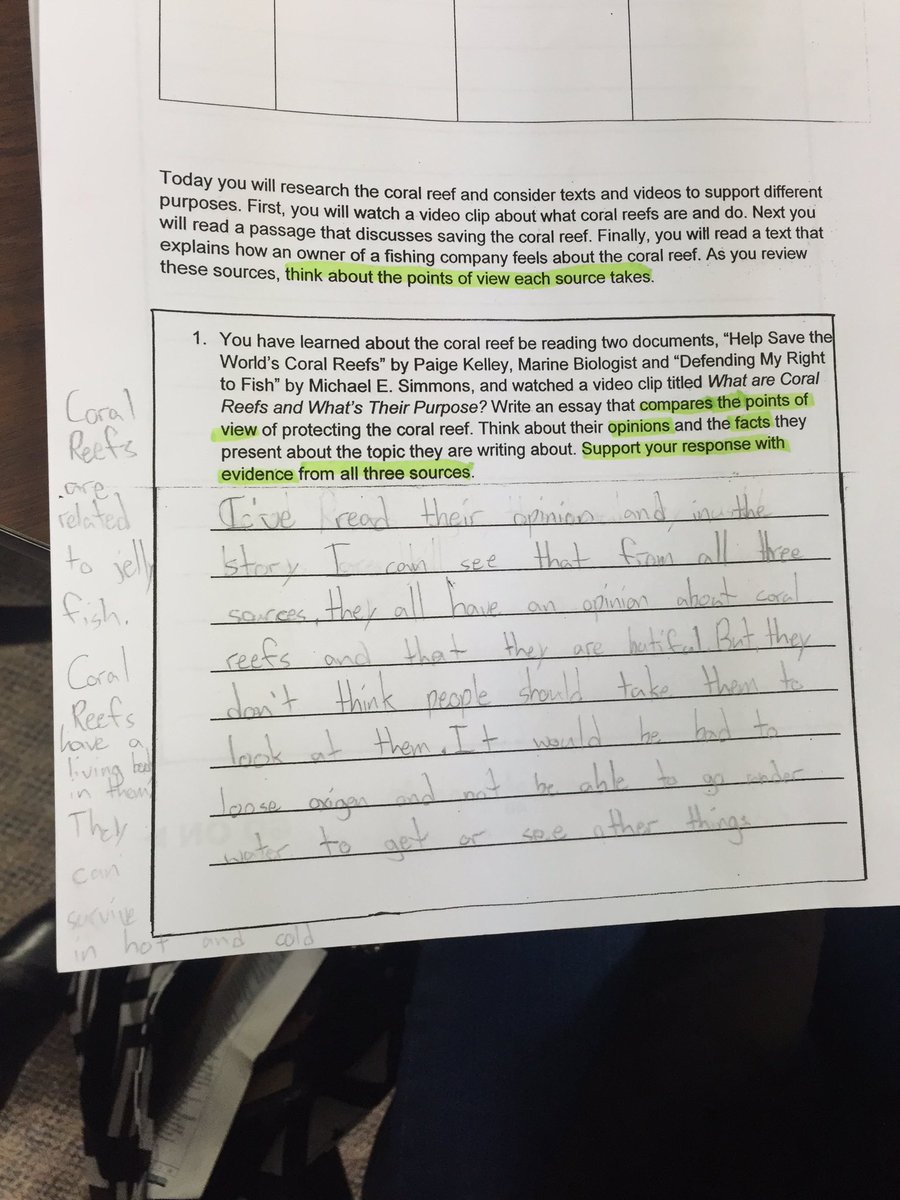 Today you will research the coral reef and consider texts and videos to support different
purposes. First, you will watch a video clip about what coral reefs are and do. Next you
will read a passage that discusses saving the coral reef. Finally, you will read a text that
explains how an owner of a fishing company feels about the coral reef. As you review
these sources, think about the points of view each source takes.
1. You have learned about the coral reef be reading two documents, “Help Save the
World’s Coral Reefs” by Paige Kelley, Marine Biologist and “Defending My Right
to Fish” by Michael E. Simmons, and watched a video clip titled What are Coral
Reefs and What’s Their Purpose? Write an essay that compares the points of
view of protecting the coral reef. Think about their opinions and the facts they
present about the topic they are writing about. Support your response with
evidence from all three sources.
I've read their opinion and, in the
story I can see that from all three
sources, they all have an opinion about coral
reefs and that they are butiful. But, they
don't think people should take them to
look at them. It would be bad to
loose oxigen and not be able to go under
water to get or see other things
Coral
Reefs
are
related
to jelly
fish.
Coral
Reefs
have a
living
in them
They
can
survive
in hot and cold